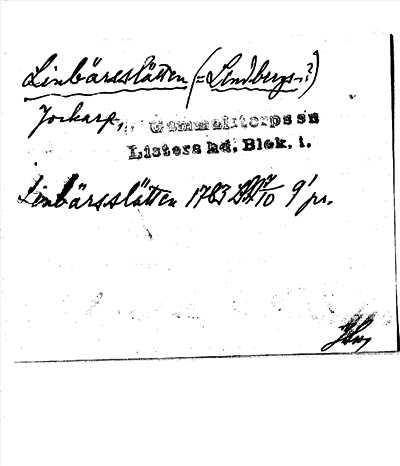 Linbärsslätten (= Lindbergs-?)
Jockarp, Gammaltorps sn
Listers hd. Blek. l.
Linbärsslätten 1783 7/10 9' pr.